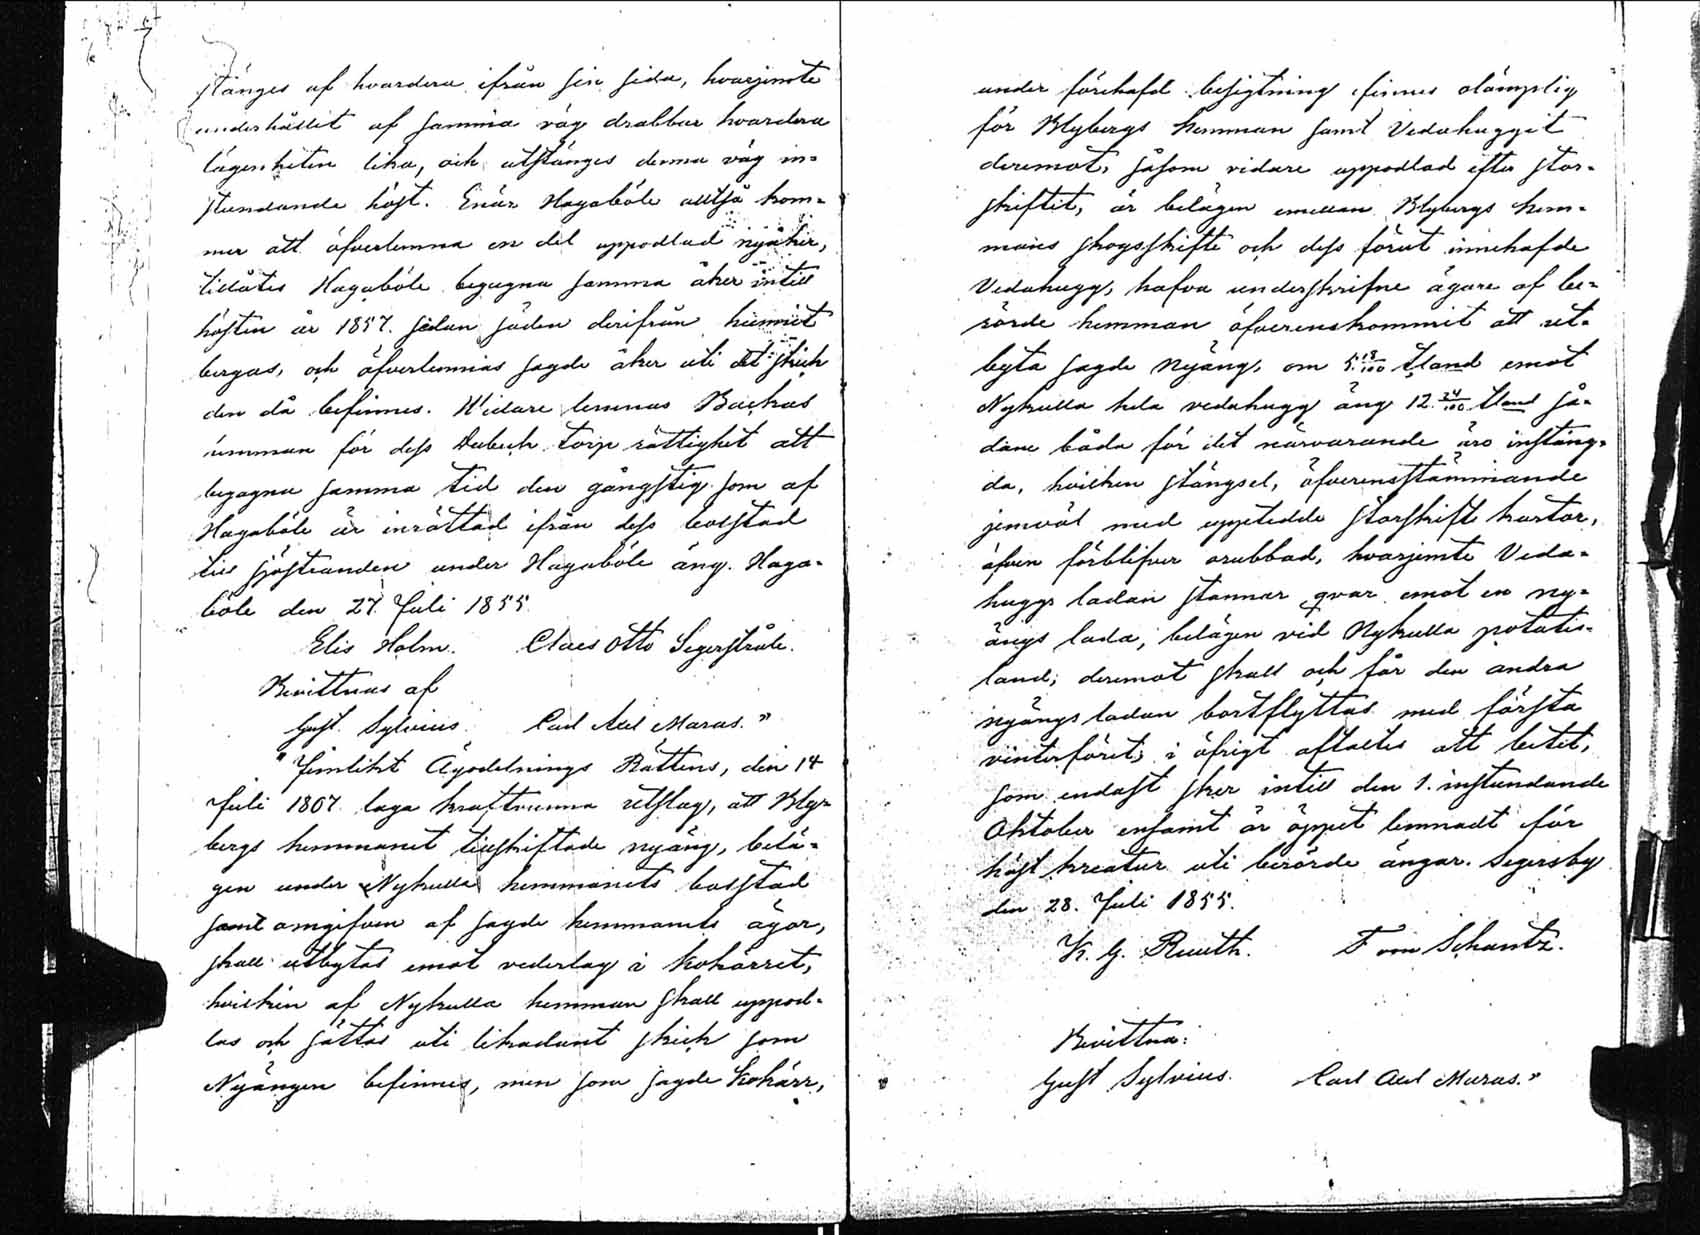 stänges af hvardera ifrån sin sida, hvarjemte
underhållit af samma väg drabbar hvardera
lägenheten lika, och utstänges denna väg in-
stundande höst. Enär Hagaböle alltså kom-
mer att öfverlemna en del uppodlad nyåker,
tillåtes Hagaböle begagna samma åker intill
hösten år 1857. sedan säden derifrån hunnit
bergas, och öfverlemnas sagde åker uti det skick
den då befinnes. Vidare lemnas Backas
hemman för dess torp rättighet att
begagna samma tid den gångstig som af
Hagaböle är inrättad ifrån dess bolstad
till sjöstranden under Hagaböle äng. Haga-
böle den 27. Juli 1855.
Elis Holm. Claes Otto Segerstråle.
Bevittnas af
Gust. Sylvius. Carl Axel Maras."
"Jemlikt Ägodelnings Rättens, den 14
Juli 1807 laga kraftvunna utslag, att Bly-
bergs hemmanet tillskiftade nyäng, belä-
gen under Nykulla hemmanets bolstad
samt omgifven af sagde hemmanets ägor,
skall utbytas emot vederlag i Kokärret,
hvilken af Nykulla hemman skall uppod-
las och sättas uti likadant skick som
Nyängen befinnes, men som sagde Kokärr,
under förehafd besigtning finnes olämplig
för Blybergs hemman samt Vedahuggit
deremot, såsom vidare uppodlad efter stor-
skiftet, är belägen emellan Blybergs hem-
mans skogsskifte och dess förut innehafde
Vedahugg, hafva underskrifne ägare af be-
rörde hemman öfverenskommit att ut-
byta sagde Nyäng, om 5.18/100 tland emot
Nykulla hela vedahugg äng 12.24/100 tland så-
dane båda för det närvarande äro instäng-
da, hvilken stängsel, öfverensstämmande
jemväl med uppetedde storskifts kartor,
äfven förblifver orubbad, hvarjemte Veda-
huggs ladan stannar qvar emot en ny-
ängs lada, belägen vid Nykulla potatis-
land; deremot skall och får den andra
nyängs ladan bortflyttas med första
vinterföret; i öfrigt aftaltes att betet,
som endast sker intill den 1. instundande
Oktober ensamt är öppet lemnadt för
höst kreatur uti berörde ängar. Segersby
den 28. Juli 1855.
K. G. Reuth. F von Schantz.
Bevittna:
Gust Sylvius. Carl Axel Maras."